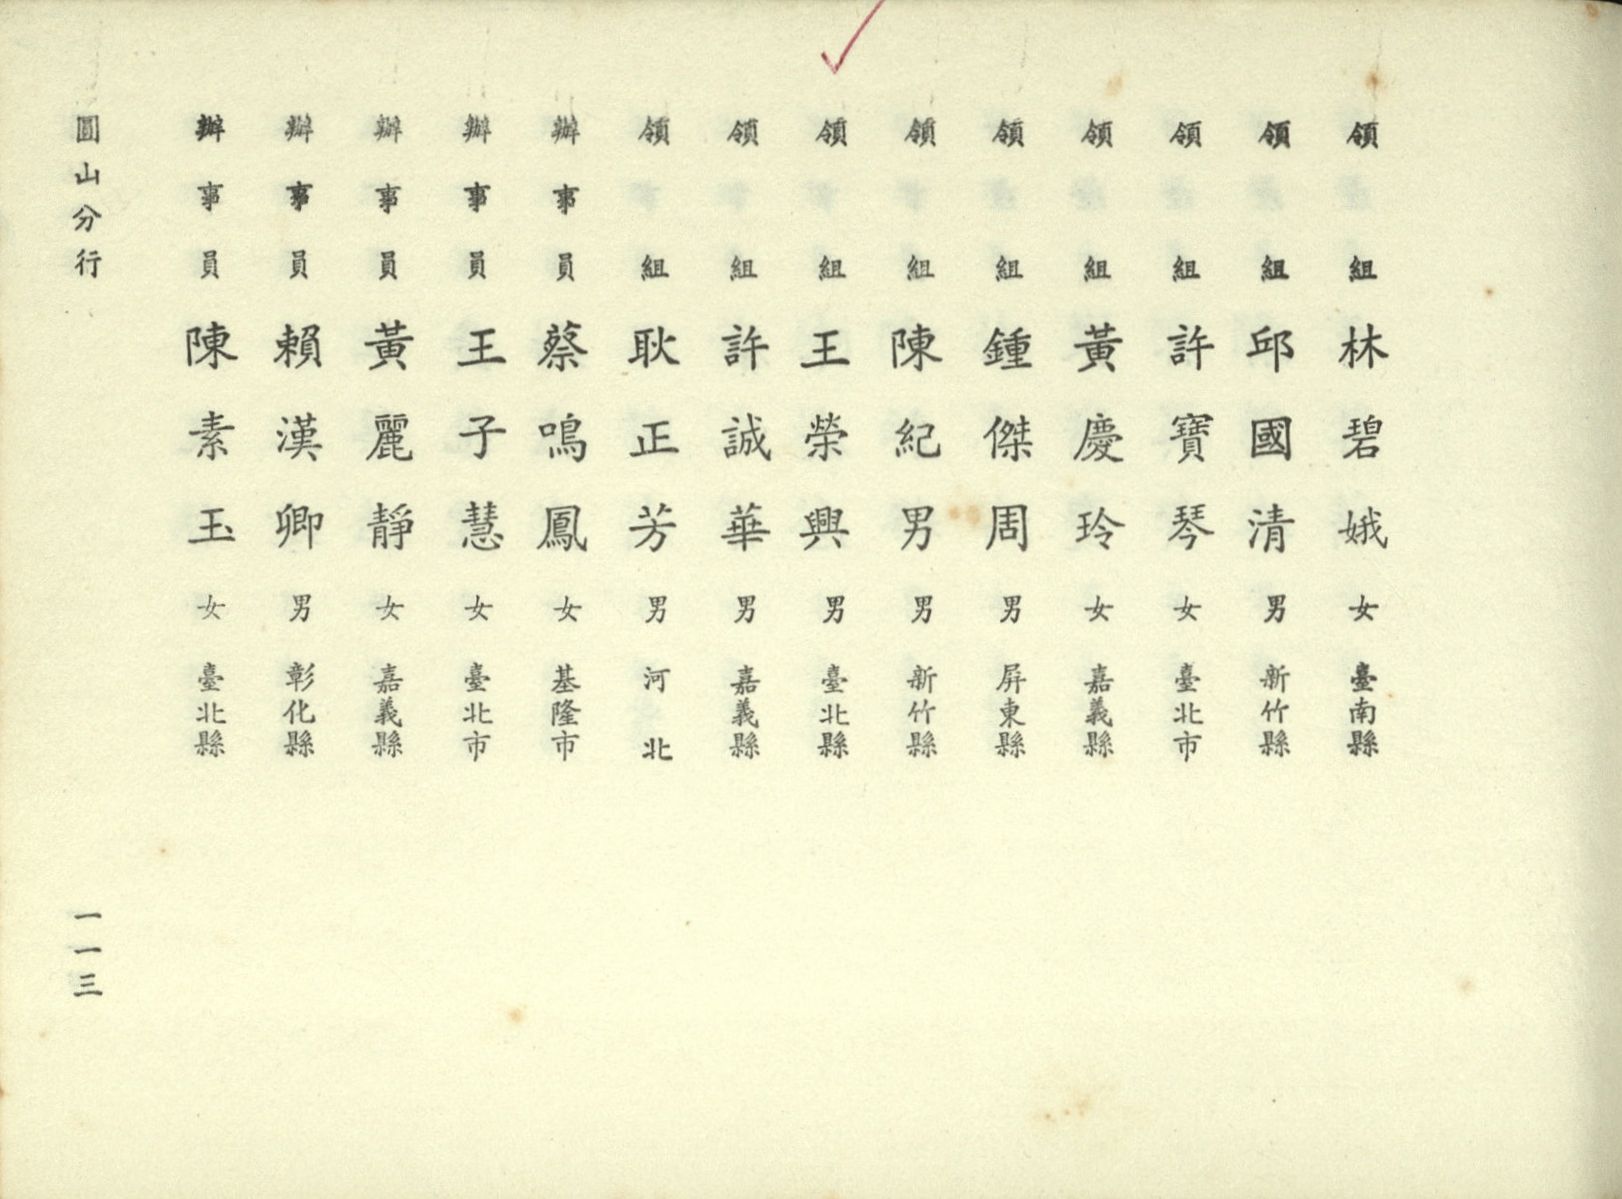 領組 林碧娥 女 臺南縣
領組 邱國清 男 新竹縣
領組 許寶琴 女 臺北市
領組 黃慶玲 女 嘉義縣
領組 鍾傑周 男 屏東縣
領組 陳紀男 男 新竹縣
領組 王榮興 男 臺北縣
領組 許誠華 男 嘉義縣
領組 耿正芳 男 河北
辦事員 蔡鳴鳳 女 基隆市
辦事員 王子慧 女 臺北市
辦事員 黃麗靜 女 嘉義縣
辦事員 賴漢卿 男 彰化縣
辦事員 陳素玉 女 臺北縣
圓山分行
一一三